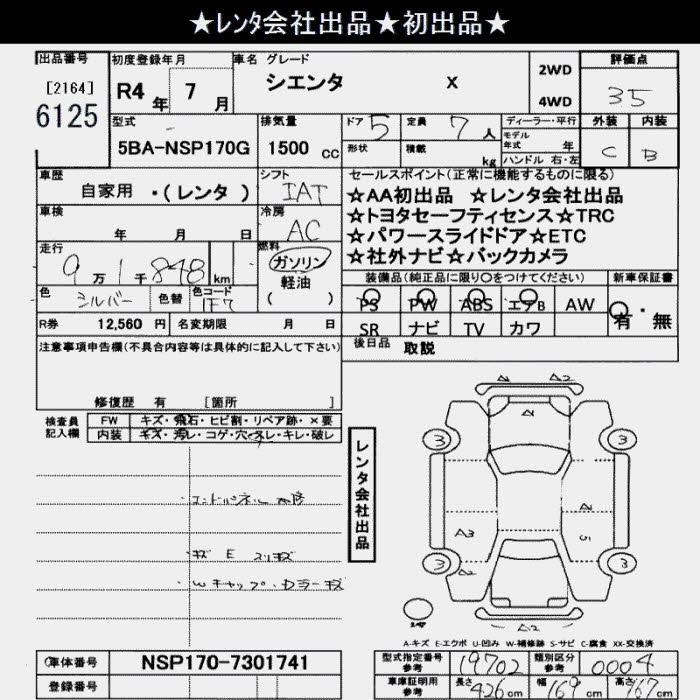 ★レンタ会社出品★初出品★
出品番号 初度登録年月 車名 グレード 評価点
[2164] 6125 R4年 7月 シエンタ X 2WD 4WD 35
型式 排気量 ドア 5 定員 7人 ディーラー・平行 外装 内装
5BA-NSP170G 1500 cc 形状 積載 kg モデル年式 年 ハンドル 右・左 C B
車歴 シフト セールスポイント(正常に機能するものに限る)
自家用 ・(レンタ ) IAT ☆AA初出品 ☆レンタ会社出品
車検 冷房 ☆トヨタセーフティセンス☆TRC
年 月 日 AC ☆パワースライドドア☆ETC
走行 燃料 ☆社外ナビ☆バックカメラ
9万1千848km ガソリン 軽油 ( )
装備品(純正品に限り○をつけてください) 新車保証書
色 シルバー 色替 色コード 1F7
PS PW ABS エアB AW 有・無
R券 12,560 円 名変期限 月 日
SR ナビ TV カワ
注意事項申告欄(不具合内容等は具体的に記入して下さい)
後日品 取説
修復歴 有 [箇所 ]
検査員記入欄 FW キズ・飛石・ヒビ割・リペア跡・×要
内装 キズ・汚レ・コゲ・穴・スレ・キレ・破レ
レンタ会社出品
A2
A
3 3
A
A3 S
3 3
A2
A2
キズ E スリキズ
Wキャップ・Dラーキズ
A-キズ E-エクボ U-凹み W-補修跡 S-サビ C-腐食 XX-交換済
車体番号 NSP170-7301741 型式指定番号 参考 19702 類別区分 参考 0004
登録番号 車庫証明用 参考 長さ 426cm 幅 169cm 高さ 167cm